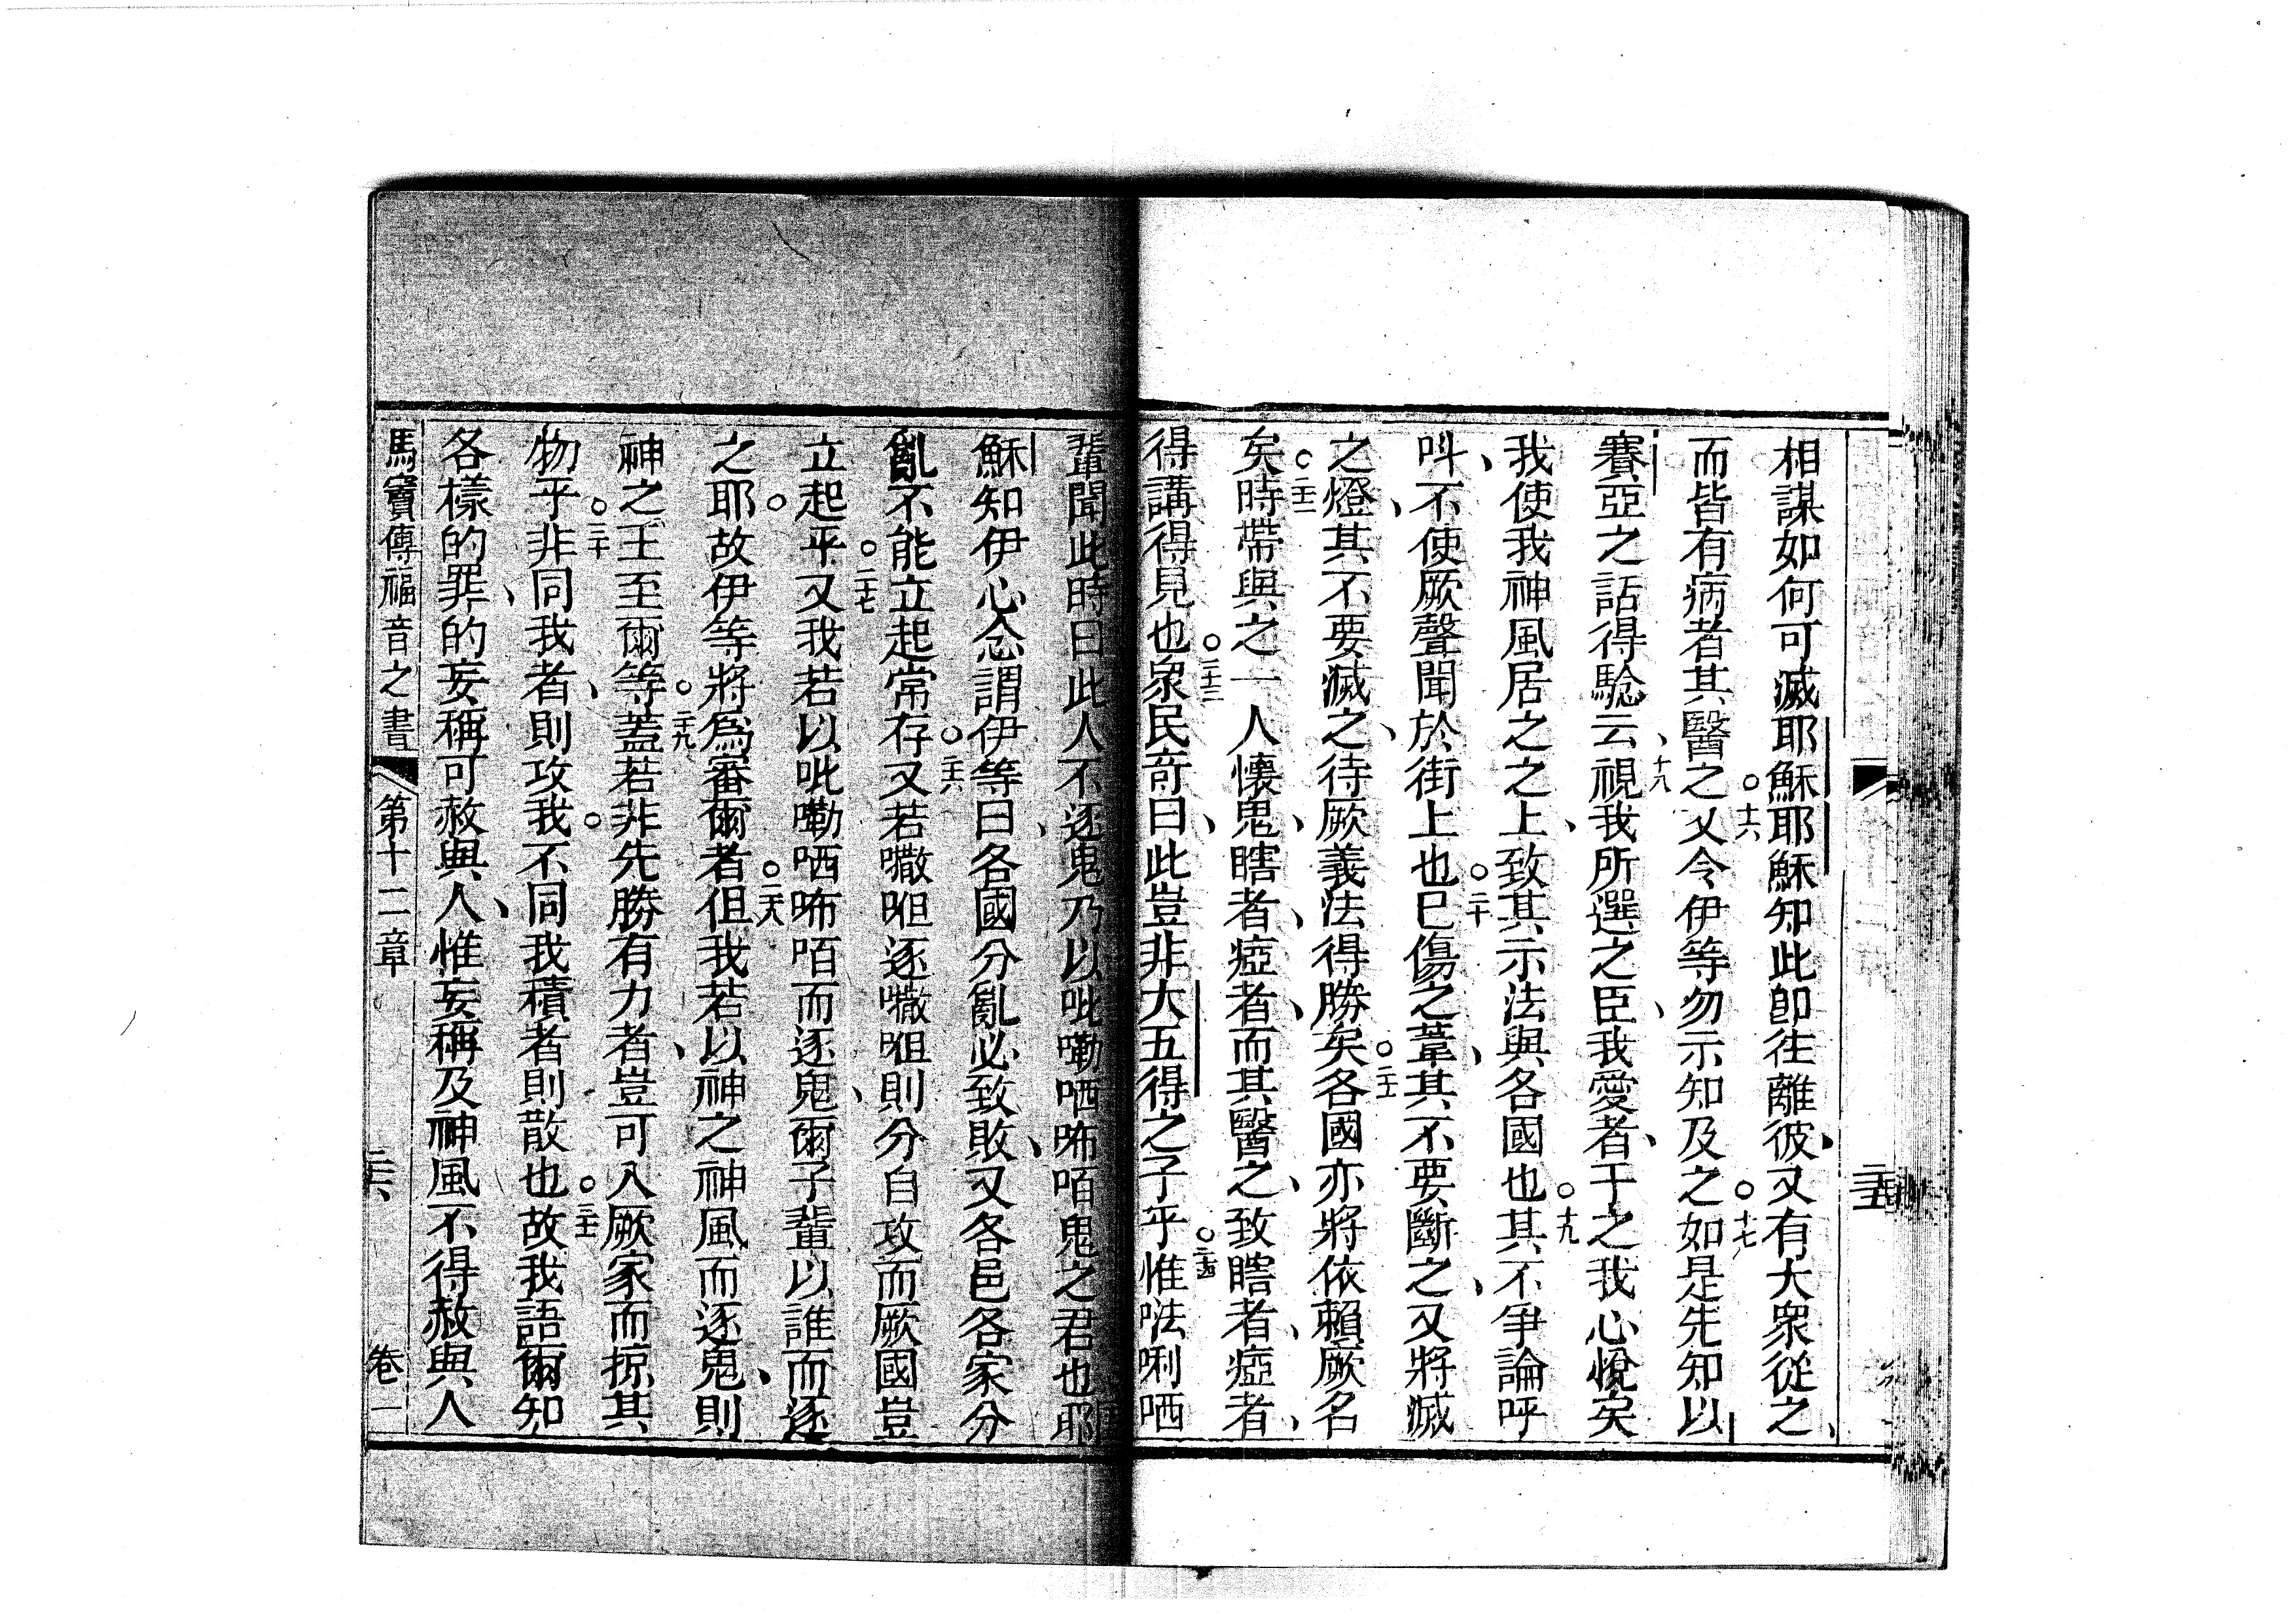 相謀如何可滅耶穌耶穌知此即往離彼又有大衆從之
而皆有病者其醫之○十六又令伊等勿示知及之○十七如是先知以
賽亞之話得騐云、十八視我所選之臣、我愛者、于之我心悅矣
我使我神風居之之上、致其示法與各國也○十九其不爭論呼
呌、不使厥聲聞於街上也○二十已傷之葦、其不要斷之、又將滅
之燈、其不要滅之、待厥義法得勝矣○二十一各國亦將依賴厥名
矣○二十二時帶與之一人懷鬼、瞎者、瘂者、而其醫之、致瞎者、瘂者、
得講得見也○二十三衆民奇曰、此豈非大五得之子乎○二十四惟𠵽唎哂
輩聞此時曰此人不逐鬼乃以吡嘞哂咘咟鬼之君也耶
穌知伊心念謂伊等曰、各國分亂必致敗、又各邑各家分
亂不能立起常存○二十六又若㘔咀逐㘔咀則分自攻而厥國豈
立起乎○二十七又我若以吡嘞哂咘咟而逐鬼、爾子輩以誰而逐
之耶○故伊等將為審爾者○二十八但我若以神之神風而逐鬼、則
神之王至爾等○二十九蓋若非先勝有力者、豈可入厥家而掠其
物乎○三十非同我者、則攻我○不同我積者則散也○三十一故我語爾知
各樣的罪、的妄稱可赦與人、惟妄稱及神風不得赦與人
馬竇傳福音之書 第十二章 二六 卷一